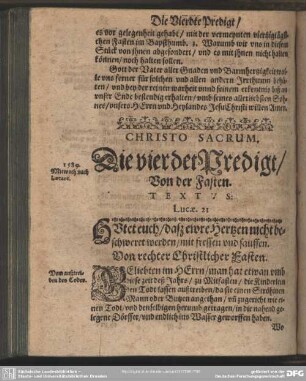 Die Vierdte Predigt/
es vor gelegenheit gehabt/ mit der vermeynten viertzigtägli-
chen Fasten im Bapsthumb. 2. Warumb wir vns in diesem
Stück von ihnen abgesondert/ vnd es mit ihnen nicht halten
können/ noch halten sollen.
Gott der Vater aller Gnaden vnd Barmhertzigkeit wol-
le vns ferner für solchen vnd allen andern Irrthumen behü-
ten/ vnd bey der reinen warheit vnnd seinem erkentnis biß an
vnser Ende bestendig erhalten/ vmb seines allerliebsten Soh-
nes/ vnsers HErrn vnd Heylandes Jesu Christi willen/ Amen.
CHRISTO SACRUM,
Die vierdte Predigt/
Von der Fasten.
TEXTVS:
Lucæ. 21
1589.
Mitwoch nach
Lætare.
HVtet euch/ daß ewre Hertzen nicht be-
schweret werden/ mit fressen vnd sauffen.
Von rechter Christlicher Fasten.
Vom austrei-
ben des Todes.
GEliebten im HErrn/ man hat etwan vmb
diese zeit deß Jahrs/ zu Mitfasten/ die Kinder den
Tod lassen austreiben/ da sie einen Ströhinen
Mann oder Butzen angethan/ vñ zugericht wie ei-
nen Todt/ vnd denselbigen herumb getragen/ in die nahend ge-
legene Dörffer/ vnd endlich ins Wasser geworffen haben.
Wo